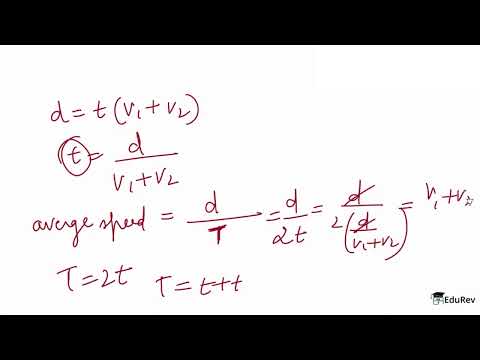 d = t (v₁ + v₂)
t = d / (v₁ + v₂)
averge speed = d / T = d / 2t = d / 2(d / (v₁ + v₂)) = v₁ + v₂
T = 2t T = t + t
EduRev